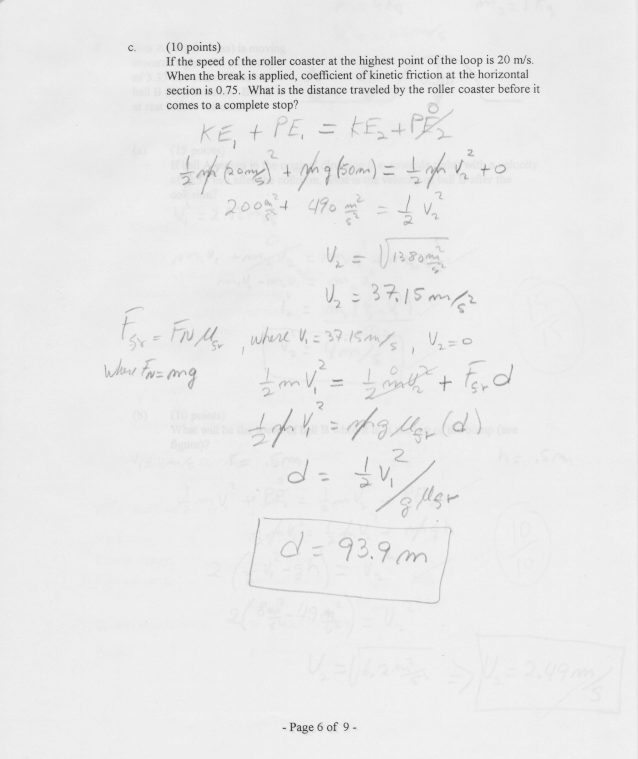 c. (10 points)
If the speed of the roller coaster at the highest point of the loop is 20 m/s.
When the break is applied, coefficient of kinetic friction at the horizontal
section is 0.75. What is the distance traveled by the roller coaster before it
comes to a complete stop?
KE₁ + PE₁ = KE₂ + PE₂ 0
½ m (20 m/s)² + m g (50m) = ½ m V₂² + 0
200 m²/s² + 490 m²/s² = ½ V₂²
V₂ = √1380 m²/s²
V₂ = 37.15 m/s²
Ffr = FN μfr, where V₁ = 37.15 m/s, V₂ = 0
Where FN = mg
½ m V₁² = ½ m V₂² 0 + Ffr d
½ m V₁² = m g μfr (d)
d = ½ V₁² / g μfr
d = 93.9 m
- Page 6 of 9 -